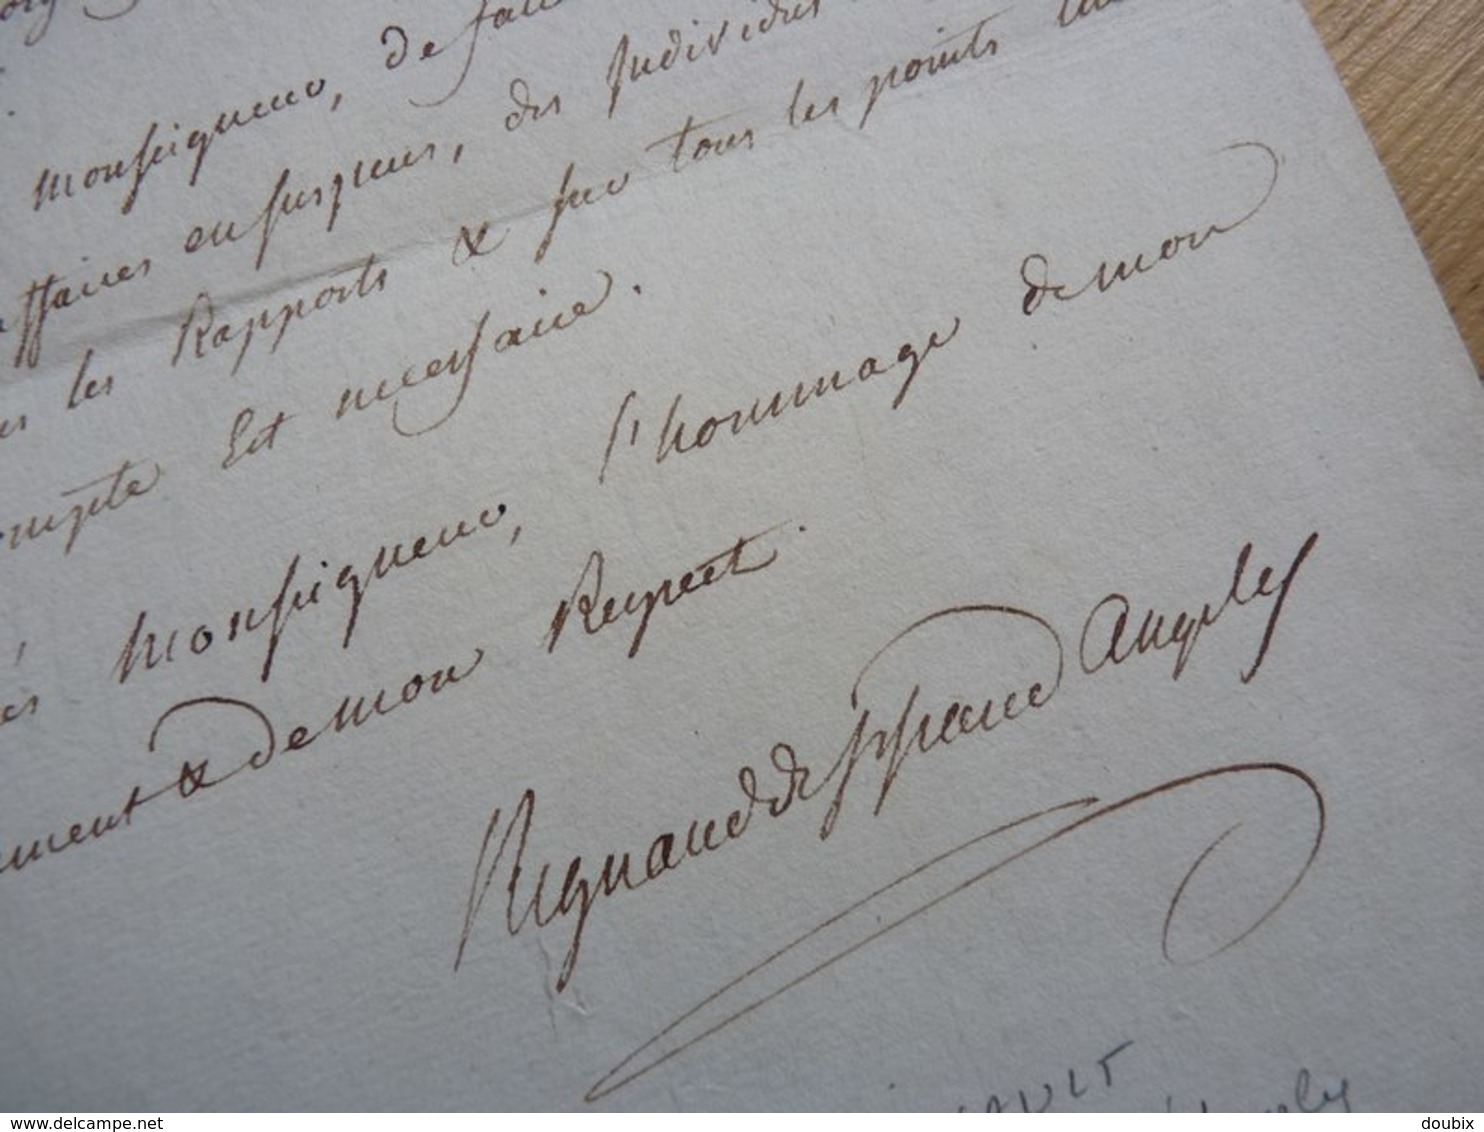 Monseigneur, de faire
affaires en suspens, des Individus
les Rapports & sur tous les points
compte Est necessaire.
Monseigneur, l'hommage de mon
ment & de mon Respect.
Regnaud de St Jean d'Angely
AULT
d'Angely
delcampe.net
doubix